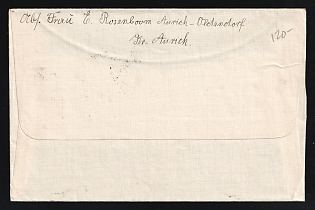 Abs. Frau E. Rosenboom Aurich-Oldendorf
Kr. Aurich.
120-